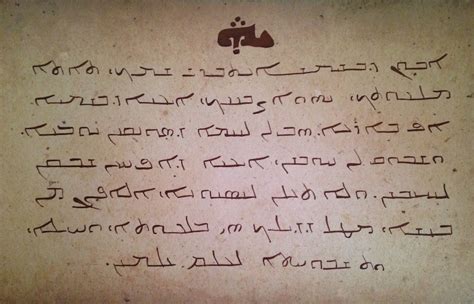 ܐܒܘܢ ܕܒܫܡܝܐ ܢܬܩܕܫ ܫܡܟ ܬܐܬܐ
ܡܠܟܘܬܟ ܢܗܘܐ ܨܒܝܢܟ ܐܝܟܢܐ ܕܒܫܡܝܐ
ܐܦ ܒܐܪܥܐ. ܗܒ ܠܢ ܠܚܡܐ ܕܣܘܢܩܢܢ ܝܘܡܢܐ.
ܘܫܒܘܩ ܠܢ ܚܘܒܝܢ ܐܝܟܢܐ ܕܐܦ ܚܢܢ ܫܒܩܢ
ܠܚܝܒܝܢ. ܘܠܐ ܬܥܠܢ ܠܢܣܝܘܢܐ ܐܠܐ ܦܨܢ ܡܢ
ܒܝܫܐ. ܡܛܠ ܕܕܝܠܟ ܗܝ ܡܠܟܘܬܐ ܘܚܝܠܐ
ܘܬܫܒܘܚܬܐ ܠܥܠܡ ܥܠܡܝܢ.